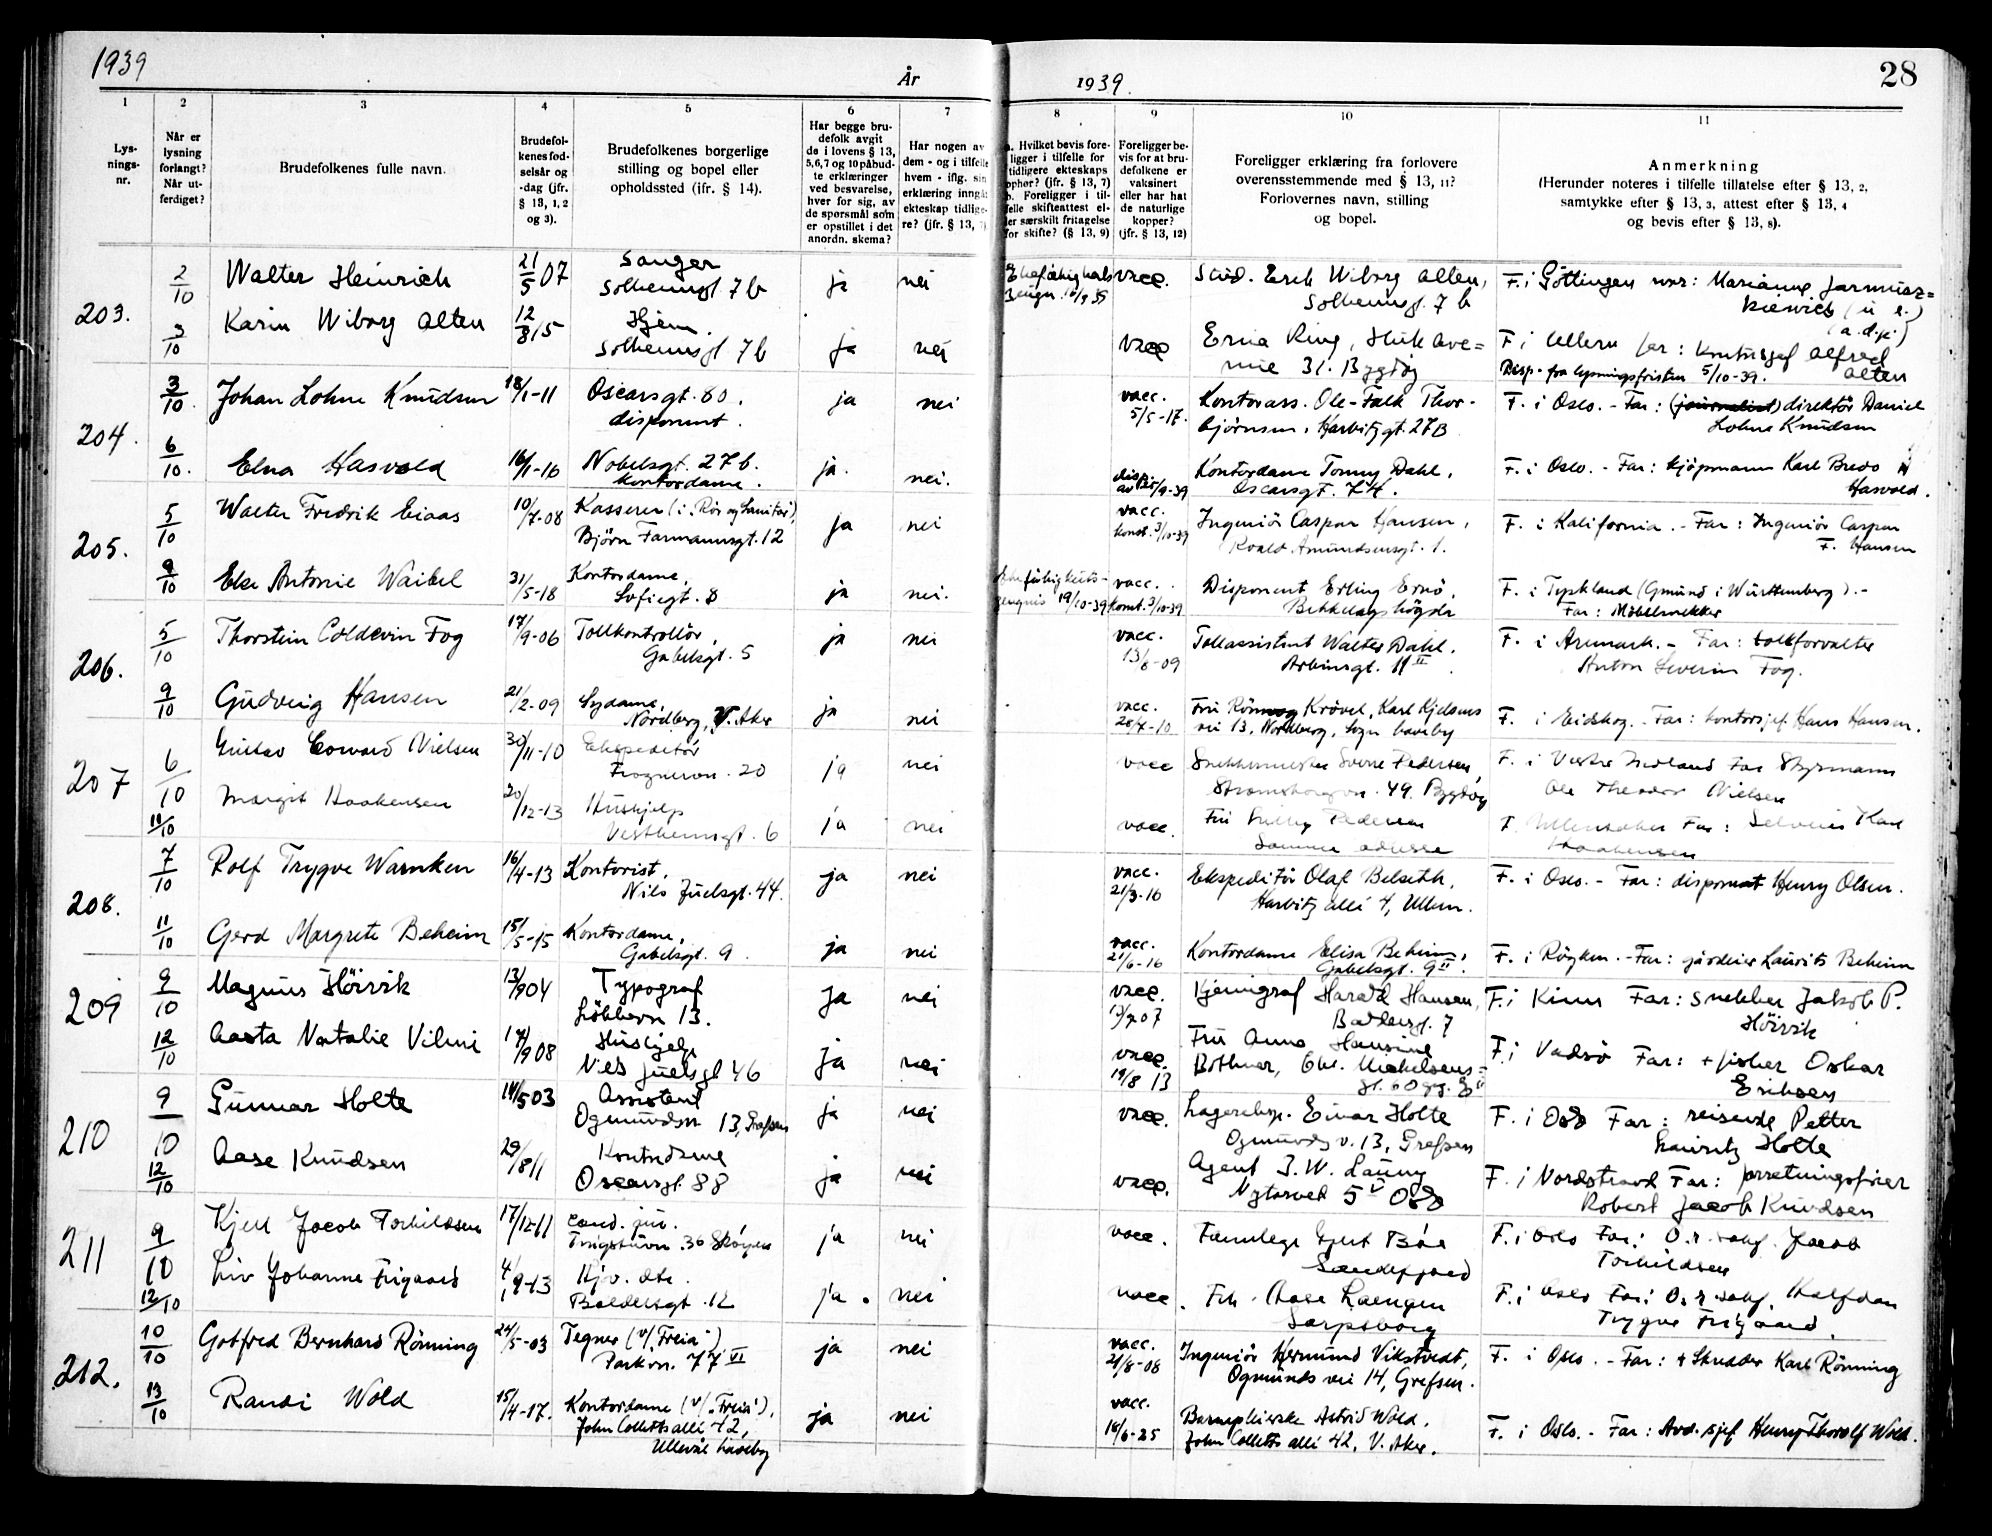 1939
År
1939.
28
1
2
3
4
5
6
7
8
9
10
11
Lys-
nings-
nr.
Når er
lysning
forlangt?
Når ut-
ferdiget?
Brudefolkenes fulle navn.
Brudefol-
kenes fød-
selsår og
-dag (jfr.
§ 13, 1, 2
og 3).
Brudefolkenes borgerlige
stilling og bopel eller
opholdssted (ifr. § 14).
Har begge bru-
defolk avgit
de i lovens § 13,
5,6,7 og 10 påbud-
te erklæringer
ved besvarelse,
hver for sig, av
de spørsmål som
er opstillet i det
anordn. skema?
Har nogen av
dem - og i tilfelle
hvem - iflg. sin
erklæring inngåt
ekteskap tidlige-
re? (jfr. § 13,
a. Hvilket bevis fore-
ligger i tilfelle for
tidligere ekteskaps
ophør? (jfr. § 13, 7)
b. Foreligger i til-
felle skifteattest el-
ler særskilt fritagelse
for skifte? (§ 13, 9)
Foreligger be-
vis for at bru-
defolkene er
vaksinert
eller har hat
de naturlige
kopper?
(jfr. § 13, 12)
Foreligger erklæring fra forlovere
overensstemmende med § 13, 11?
Forlovernes navn, stilling
og bopel.
Anmerkning
(Herunder noteres i tilfelle tillatelse efter § 13, 2,
samtykke efter § 13, 3, attest efter § 13, 4
og bevis efter § 13, 8).
203.
2/10 Walter Heinrich 21/5 07 Sanger
Solheimsgt. 7b ja nei vacc. Stud. Erik Wiborg Alten,
Solheimsgt. 7b F. i Göttingen mor: Marianne
3/10 Karin Wiborg Alten 12/8 15 Hjem.
Solheimsgt 7b ja nei vacc Erna Ring, Huk ave=
nue 31. Bygdøy F i Ullern far: Kontorsjef Alfred
Alten
Disp. fra lysningsfristen 5/10-39.
204.
3/10. Johan Lohne Knudsen 18/1-11 Oscarsgt. 80.
disponent. ja nei vacc.
5/5-17. Kontorass. Ole-Falk Thor-
björnsen, Harbitzgt. 27B F. i Oslo. - Far: (journalist) direktör Daniel
Lohne Knudsen
6/10. Elna Hasvold 16/1-16 Nobelsgt. 27b.
Kontordame. ja. nei. Kontordame Tonny Dahl,
Oscarsgt. 74. F. i Oslo. - Far: kjöpmann Karl Bredo
Hasvold.
205.
5/10 Walter Fredrik Eiaas 10/7-08 Kasserer (i „Rör og Sanitær"),
Björn Farmannsgt. 12 ja nei vacc.
konst. 3/10-39 Ingeniör Caspar Hansen,
Roald Amundsensgt. 1. F. i Kalifornia. - Far: Ingeniör Caspar
F. Hansen
9/10 Else Antonie Waibel 31/5-18 Kontordame,
Sofiegt. 8 ja nei. 19/10-39 vacc.
konst. 3/10-39 Disponent Erling Ernö,
Bekkelagshögda F. i Tyskland (Gmünd i Württemberg). -
Far: Möbelsnekker
206.
5/10 Thorstein Coldevin Fog 17/9-06 Tollkontrollör,
Gabelsgt. 5 ja nei vacc.
13/6-09 Tollassistent Walter Dahl,
Arbinsgt. 11 II F. i Aremark. - Far: tollforvalter
Anton Severin Fog.
9/10 Gudveig Hansen 21/2-09 Sydame,
Nordberg, V. Aker ja nei vacc.
28/4-10 Fru Krövel, Karl Kjelsens
vei 13, Nordberg, Sogn haveby F. i Eidskog. - Far: kontorsjef Hans Hansen.
207
6/10 Gustav Edward Nielsen 30/11-10 Ekspeditör
Frognervn. 20 ja nei vacc Snekkermester Sverre Pedersen,
49. Bygdøy F. i Vestre Moland Far Styrmann
Ole Theodor Nielsen
11/10 Margit Haakensen 20/12-13 Hushjelp
Vestheimsgt. 6 ja nei vacc. Fru Pedersen
Samme adresse F. Ullensaker Far: Karl
Haakensen
208.
7/10 Rolf Trygve Warnken 16/4-13 Kontorist,
Nils Juelsgt. 44. ja nei vacc.
21/3-16 Ekspeditör Olaf Belseth,
Harbitz allé 4, Ullern. F. i Oslo. - Far: disponent Henry Olsen.
11/10 Gerd Margrete Beheim 15/5-15 Kontordame,
Gabelsgt. 9. ja nei vacc.
21/6-16 Kontordame Elisa Beheim,
Gabelsgt. 9 II. F. i Röyken. - Far: gårdeier Laurits Beheim
209
9/10 Magnus Höivik 13/9 04 Typograf
Lökkevn 13. ja nei vacc.
Kjemigraf Harald Hansen,
Baldersgt. 7 F. i Kinn Far: snekker Jakob P.
Höivik
12/10 Aasta Natalie Vilmi 17/9 08 Hushjelp
Niels Juelsgt 46 ja nei vacc.
19/8 13 Fru Anna Hansine
Bothner, Chr. Mickelsens=
gt. 60 F. i Vadsö Far: + fisker Oskar
Eriksen
210
9/10 Gunnar Holte 14/5 03 Assistent
Ogmundsvn 13, Grefsen ja nei vacc. Lagereksp. Einar Holte
Ogmunds v. 13, Grefsen F. i Oslo Far: reisende Petter
Lauritz Holte
12/10 Aase Knudsen 29/8 11 Kontordame
Oscarsgt. 88 ja nei vacc. Agent J. W. Launy
Nytorvet 5 V Oslo F. i Nordstrand Far: forretningsfører
Robert Jacob Knudsen
211
9/10 Kjell Jacob Torkildsen 17/12-11 Cand. jur.
Tingstuvn. 36 Skøyen ja nei vacc. Tannlege Gjert Bóe
Sandefjord F. i Oslo Far: O.r. sakf. Jacob
Torkildsen
12/10 Liv Johanne Frigaard 4/9-13 Hjv. dtr.
Baldersgt. 12 ja. nei vacc. Frk. Aase Laengen
Sarpsborg F. i Oslo Far: O.r. sakf. Halfdan
Trygve Frigaard.
212.
10/10 Gotfred Bernhard Rönning 24/5-03 Tegner (v/„Freia")
Parkvn. 77 VI ja nei vacc.
21/8-08 Ingeniör Hermund Vikstvedt,
Ogmunds vei 14, Grefsen. F. i Oslo. - Far: + Skredder Karl Rönning
13/10 Randi Wold 15/4-17. Kontordame (v/„Freia"),
John Colletts allé 42,
Ullevål haveby ja nei vacc.
16/6-25 Barnepleierske Astrid Wold,
John Colletts allé 42, V. Aker. F. i Oslo. - Far: Avd. sjef Henry Thorolf Wold.